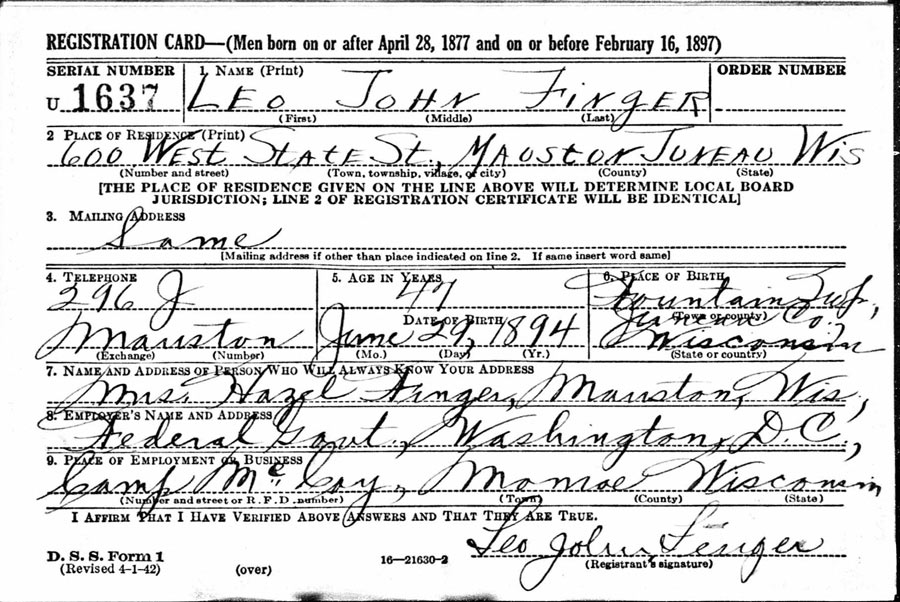 REGISTRATION CARD—(Men born on or after April 28, 1877 and on or before February 16, 1897)
SERIAL NUMBER 1. NAME (Print) ORDER NUMBER
U 1637 LEO JOHN FINGER
(First) (Middle) (Last)
2 PLACE OF RESIDENCE (Print)
600 WEST STATE ST., MAUSTON JUNEAU WIS
(Number and street) (Town, township, village, or city) (County) (State)
[THE PLACE OF RESIDENCE GIVEN ON THE LINE ABOVE WILL DETERMINE LOCAL BOARD
JURISDICTION; LINE 2 OF REGISTRATION CERTIFICATE WILL BE IDENTICAL]
3. MAILING ADDRESS
Same
[Mailing address if other than place indicated on line 2. If same insert word same]
4. TELEPHONE 5. AGE IN YEARS 6. PLACE OF BIRTH
296 J 47 Fountain Twp.,
DATE OF BIRTH (Town or county) Juneau Co.
Mauston June 29, 1894 Wisconsin
(Exchange) (Number) (Mo.) (Day) (Yr.) (State or country)
7. NAME AND ADDRESS OF PERSON WHO WILL ALWAYS KNOW YOUR ADDRESS
Mrs. Hazel Finger, Mauston, Wis.,
8. EMPLOYER'S NAME AND ADDRESS
Federal Govt., Washington, D.C.,
9. PLACE OF EMPLOYMENT OR BUSINESS
Camp McCoy, Monroe Wisconsin
(Number and street or R. F. D. number) (Town) (County) (State)
I AFFIRM THAT I HAVE VERIFIED ABOVE ANSWERS AND THAT THEY ARE TRUE.
Leo John Finger
D. S. S. Form 1
(Revised 4-1-42) (over) 16—21630-2 (Registrant's signature)